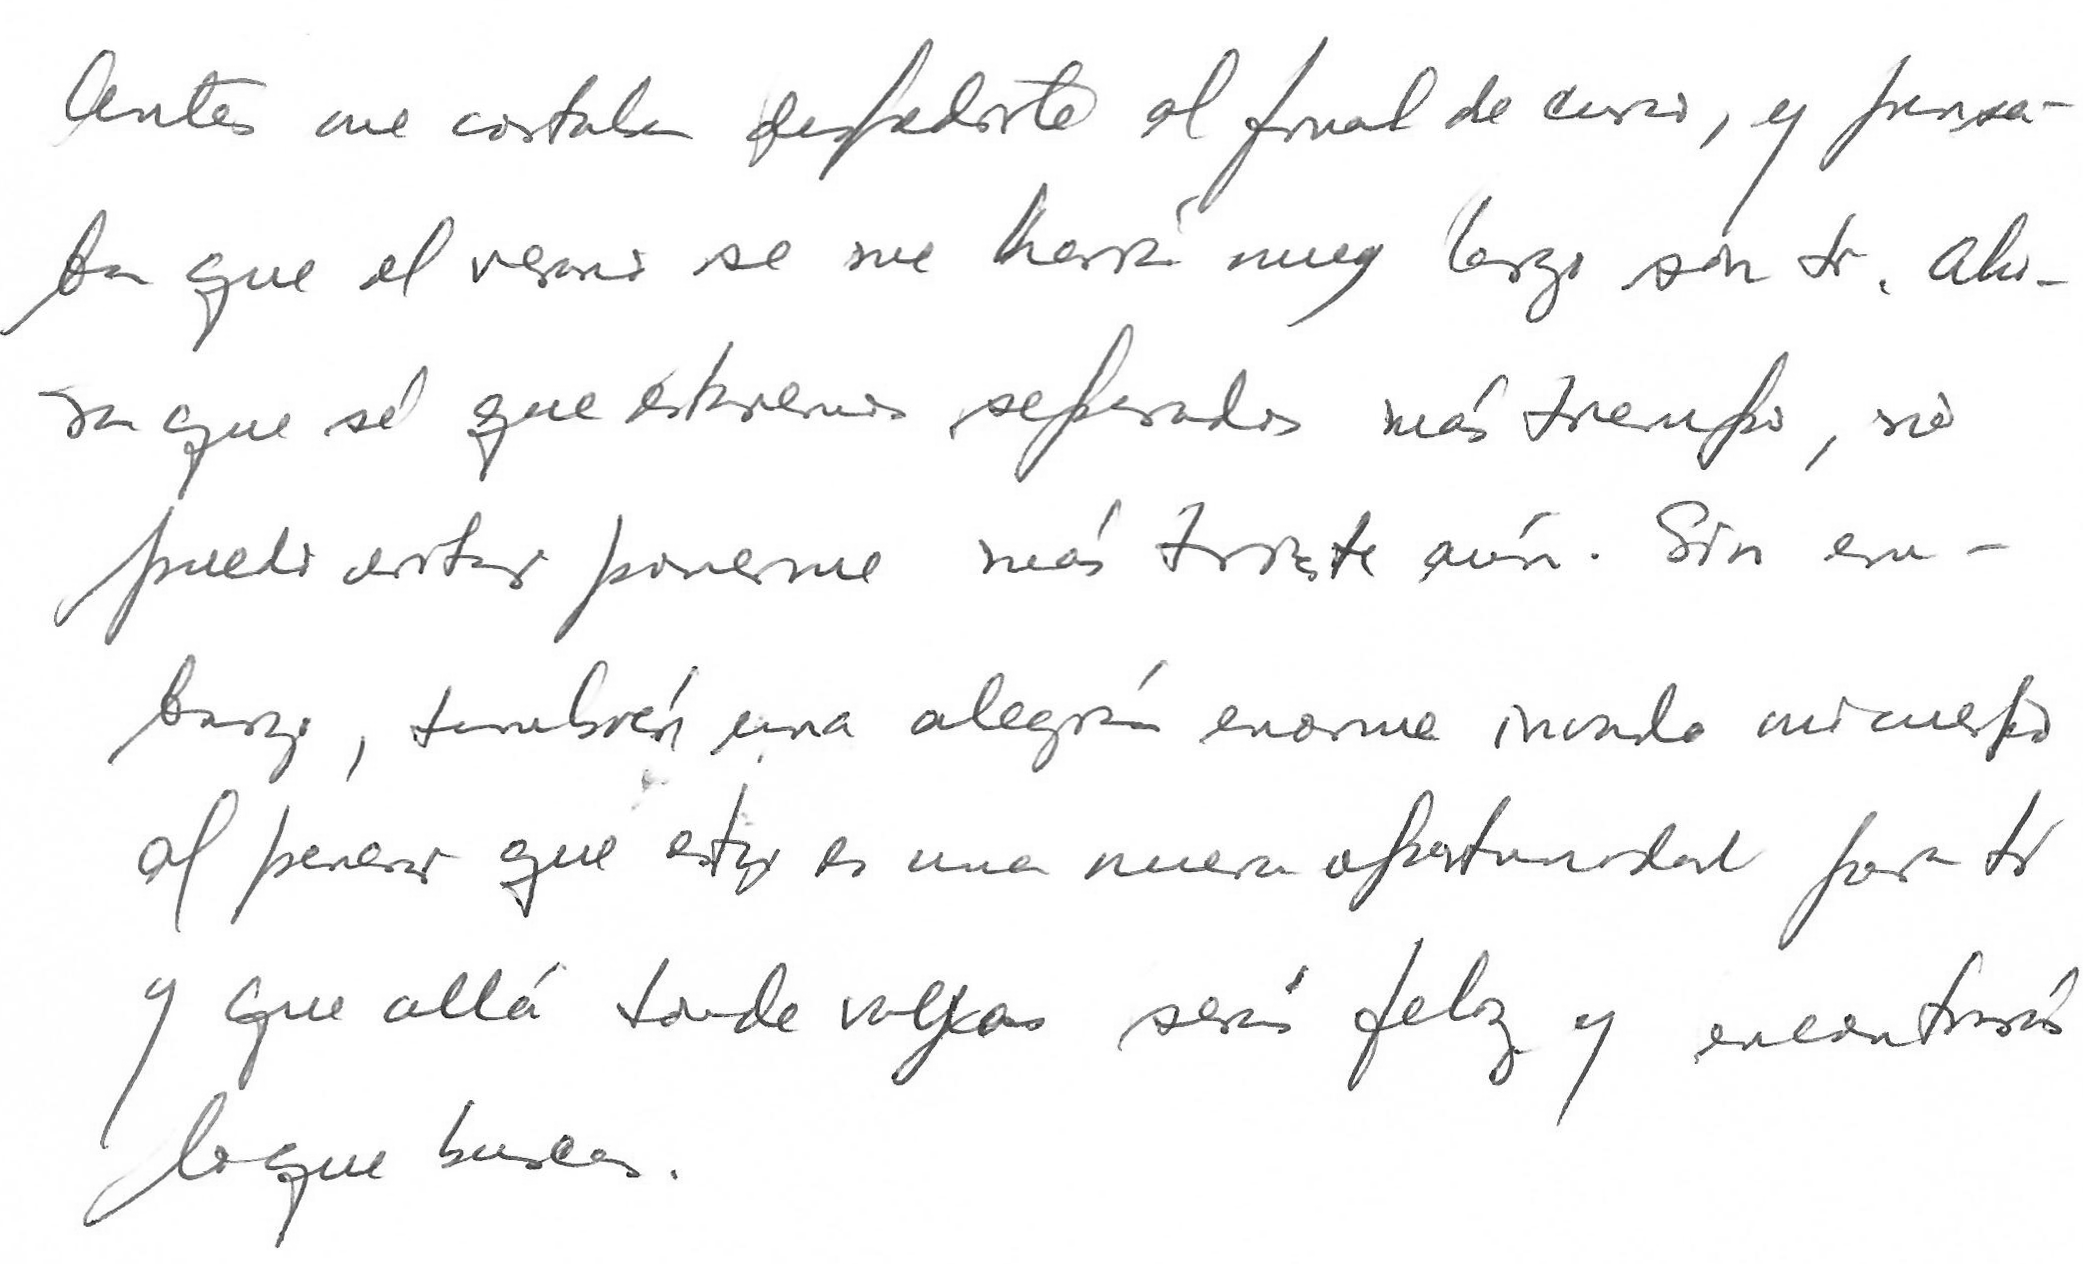 Antes me costaba despedirte al final de curso, y pensa-
ba que el verano se me haría muy largo sin ti. Aho-
ra que sé que estaremos separados más tiempo, no
puedo evitar ponerme más triste aún. Sin em-
bargo, también una alegría enorme inunda mi cuerpo
al pensar que esto es una nueva oportunidad para ti
y que allá donde vallas serás feliz y encontrarás
lo que buscas.